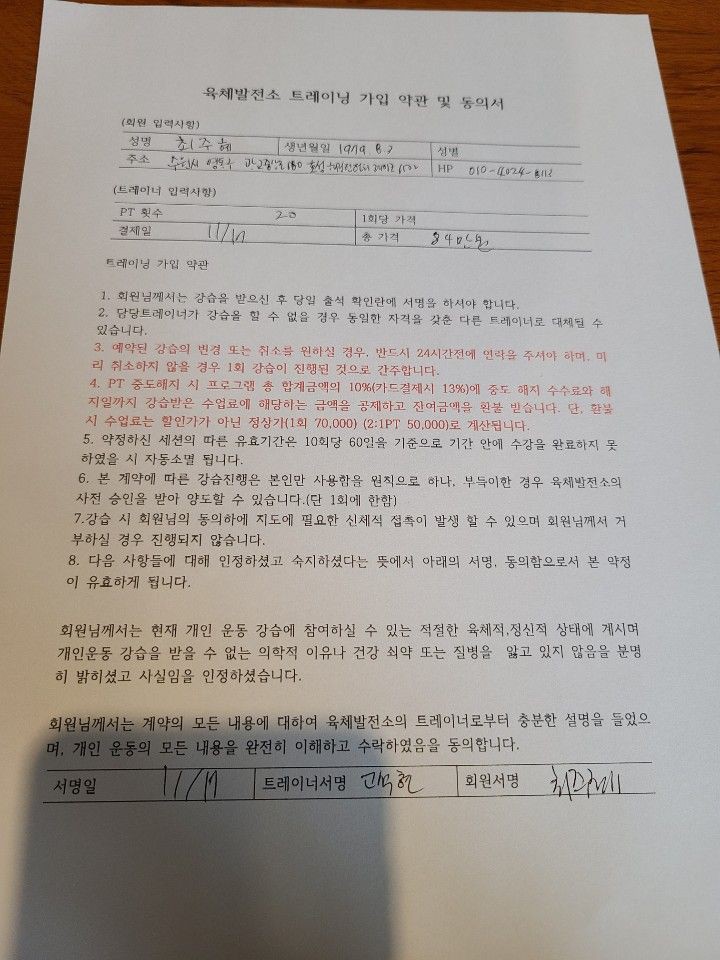 육체발전소 트레이닝 가입 약관 및 동의서
(회원 입력사항)
성명 최주혜 생년월일 1979. 8. 2 성별
주소 수원시 영통구 HP 010-4024-8113
(트레이너 입력사항)
PT 횟수 20 1회당 가격
결제일 11/17 총 가격 84만원
트레이닝 가입 약관
1. 회원님께서는 강습을 받으신 후 당일 출석 확인란에 서명을 하셔야 합니다.
2. 담당트레이너가 강습을 할 수 없을 경우 동일한 자격을 갖춘 다른 트레이너로 대체될 수
있습니다.
3. 예약된 강습의 변경 또는 취소를 원하실 경우, 반드시 24시간전에 연락을 주셔야 하며, 미
리 취소하지 않을 경우 1회 강습이 진행된 것으로 간주합니다.
4. PT 중도해지 시 프로그램 총 합계금액의 10%(카드결제시 13%)에 중도 해지 수수료와 해
지일까지 강습받은 수업료에 해당하는 금액을 공제하고 잔여금액을 환불 받습니다. 단, 환불
시 수업료는 할인가가 아닌 정상가(1회 70,000) (2:1PT 50,000)로 계산됩니다.
5. 약정하신 세션의 따른 유효기간은 10회당 60일을 기준으로 기간 안에 수강을 완료하지 못
하였을 시 자동소멸 됩니다.
6. 본 계약에 따른 강습진행은 본인만 사용함을 원칙으로 하나, 부득이한 경우 육체발전소의
사전 승인을 받아 양도할 수 있습니다.(단 1회에 한함)
7.강습 시 회원님의 동의하에 지도에 필요한 신체적 접촉이 발생 할 수 있으며 회원님께서 거
부하실 경우 진행되지 않습니다.
8. 다음 사항들에 대해 인정하셨고 숙지하셨다는 뜻에서 아래의 서명, 동의함으로서 본 약정
이 유효하게 됩니다.
회원님께서는 현재 개인 운동 강습에 참여하실 수 있는 적절한 육체적,정신적 상태에 계시며
개인운동 강습을 받을 수 없는 의학적 이유나 건강 쇠약 또는 질병을 앓고 있지 않음을 분명
히 밝히셨고 사실임을 인정하셨습니다.
회원님께서는 계약의 모든 내용에 대하여 육체발전소의 트레이너로부터 충분한 설명을 들었으
며, 개인 운동의 모든 내용을 완전히 이해하고 수락하였음을 동의합니다.
서명일 11/17 트레이너서명 회원서명 최주혜